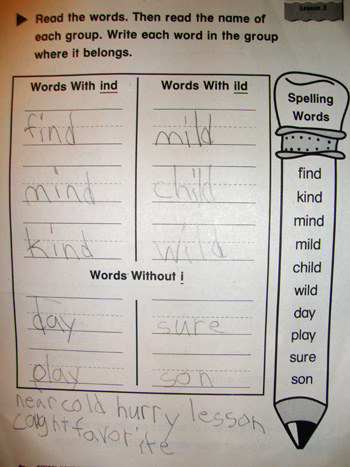 Lesson 3
Read the words. Then read the name of
each group. Write each word in the group
where it belongs.
Words With ind
find
mind
kind
Words With ild
mild
child
wild
Words Without i
day
sure
play
son
near cold hurry lesson
caght favorite
Spelling
Words
find
kind
mind
mild
child
wild
day
play
sure
son